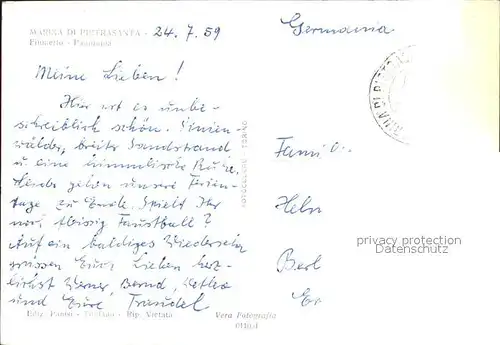 MARINA DI PIETRASANTA - 24.7.59
Fiumetto - Panorama
Germania
Meine Lieben!
Hier ist es unbe-
schreiblich schön. Pinien-
wälder, breiter Sandstrand
u. eine himmlische Ruhe.
Leider gehen unsere Ferien-
tage zu Ende. Spielt Ihr
noch fleissig Faustball?
Auf ein baldiges Wiedersehn
grüssen Euch Lieben herz-
lichst Werner, Bernd,
und Eure Traudel
FOTOCELERE - TORINO
Fami
Heln
Berl
privacy protection
Datenschutz
Rip. Vietata
Vera Fotografia